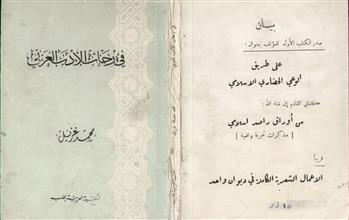 في رحاب الأدب العربي
محمد غزيل
المكتبة العربية بحلب
بيان
صدر الكتاب الأول للمؤلف بعنوان:
على طريق
الوعي الحضاري الاسلامي
كتابي القادم إن شاء الله:
من أوراق راصد اسلامي
( مذكرات تجربة واقعية )
قريباً
الاعمال الشعرية الكاملة في ديوان واحد